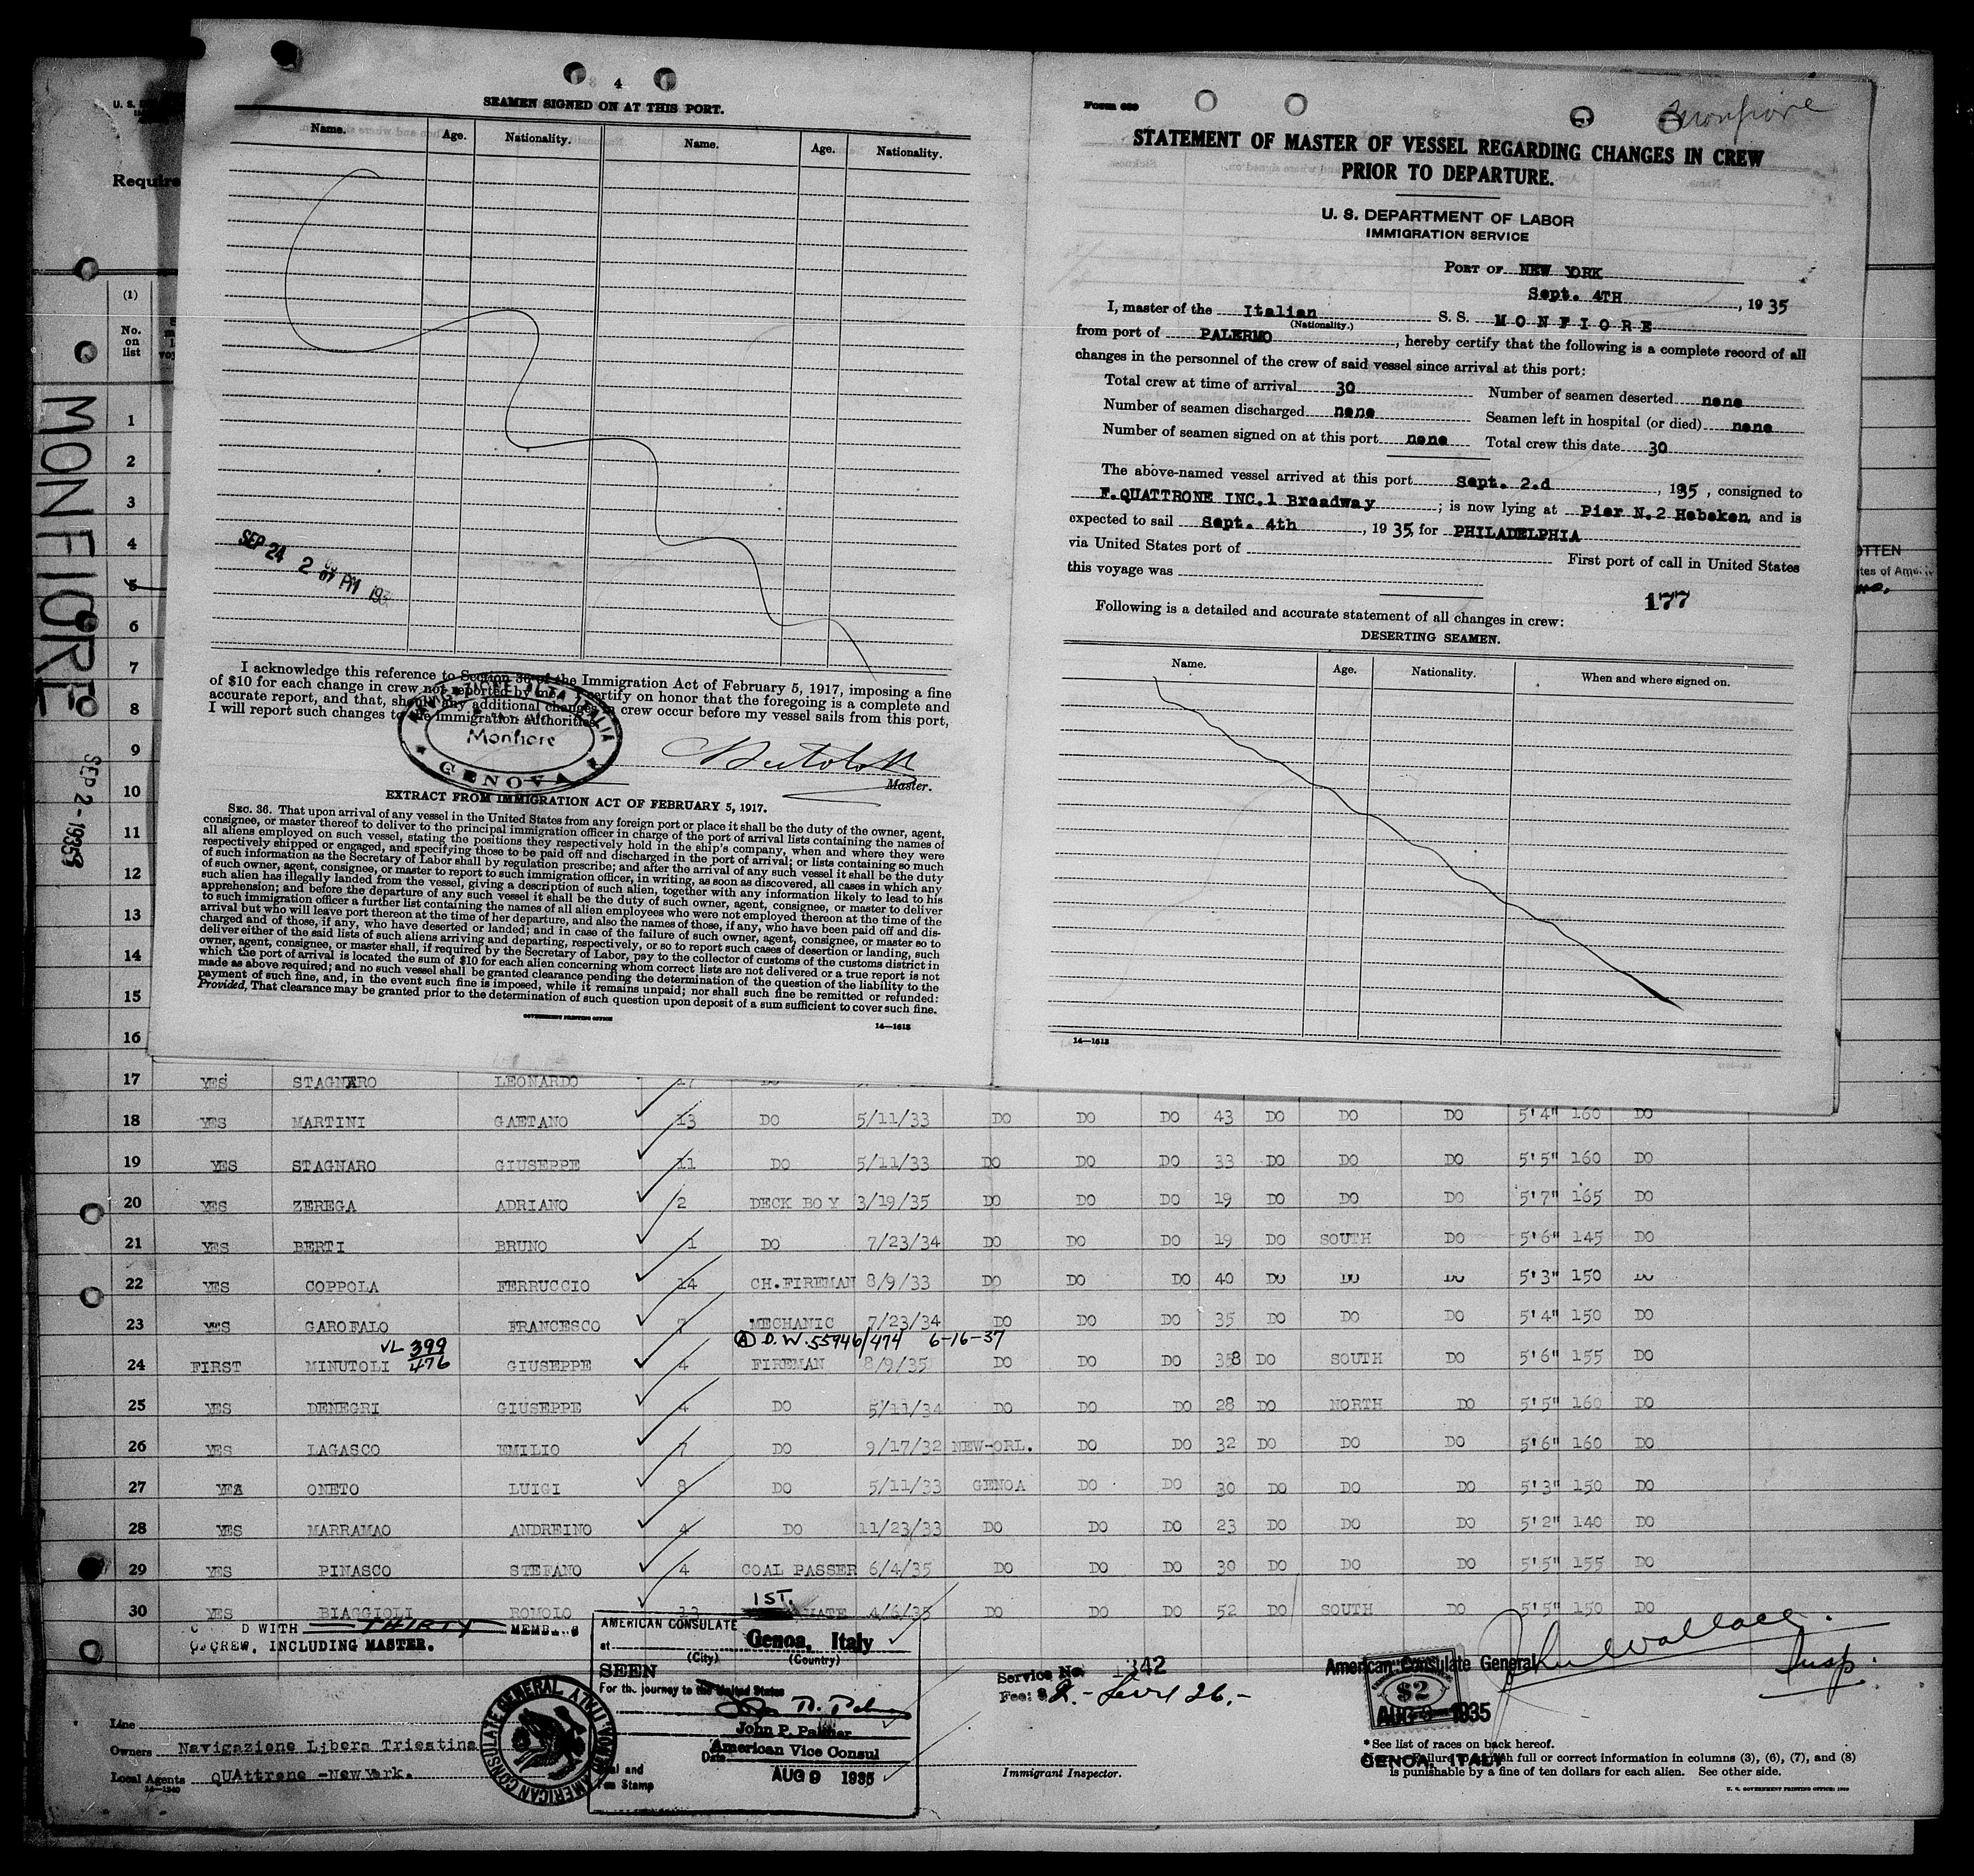 4
SEAMEN SIGNED ON AT THIS PORT.
Name. Age. Nationality. Name. Age. Nationality.
SEP 24 2 07 PM 193
I acknowledge this reference to Section 36 of the Immigration Act of February 5, 1917, imposing a fine
of $10 for each change in crew not reported by me. I certify on honor that the foregoing is a complete and
accurate report, and that, should any additional changes in crew occur before my vessel sails from this port,
I will report such changes to the immigration authorities.
Monfiore
GENOVA
Master.
EXTRACT FROM IMMIGRATION ACT OF FEBRUARY 5, 1917.
SEC. 36. That upon arrival of any vessel in the United States from any foreign port or place it shall be the duty of the owner, agent,
consignee, or master thereof to deliver to the principal immigration officer in charge of the port of arrival lists containing the names of
all aliens employed on such vessel, stating the positions they respectively hold in the ship's company, when and where they were
respectively shipped or engaged, and specifying those to be paid off and discharged in the port of arrival; or lists containing so much
of such information as the Secretary of Labor shall by regulation prescribe; and after the arrival of any such vessel it shall be the duty
of such owner, agent, consignee, or master to report to such immigration officer, in writing, as soon as discovered, all cases in which any
such alien has illegally landed from the vessel, giving a description of such alien, together with any information likely to lead to his
apprehension; and before the departure of any such vessel it shall be the duty of such owner, agent, consignee, or master to deliver
to such immigration officer a further list containing the names of all alien employees who were not employed thereon at the time of the
arrival but who will leave port thereon at the time of her departure, and also the names of those, if any, who have been paid off and dis-
charged and of those, if any, who have deserted or landed; and in case of the failure of such owner, agent, consignee, or master so to
deliver either of the said lists of such aliens arriving and departing, respectively, or so to report such cases of desertion or landing, such
owner, agent, consignee, or master shall, if required by the Secretary of Labor, pay to the collector of customs of the customs district in
which the port of arrival is located the sum of $10 for each alien concerning whom correct lists are not delivered or a true report is not
made as above required; and no such vessel shall be granted clearance pending the determination of the question of the liability to the
payment of such fine, and, in the event such fine is imposed, while it remains unpaid; nor shall such fine be remitted or refunded:
Provided, That clearance may be granted prior to the determination of such question upon deposit of a sum sufficient to cover such fine.
GOVERNMENT PRINTING OFFICE 14—1613
Form 689
Monfiore
STATEMENT OF MASTER OF VESSEL REGARDING CHANGES IN CREW
PRIOR TO DEPARTURE.
U. S. DEPARTMENT OF LABOR
IMMIGRATION SERVICE
PORT OF NEW YORK
Sept. 4TH, 1935
I, master of the Italian S. S. MONFIORE
(Nationality.)
from port of PALERMO, hereby certify that the following is a complete record of all
changes in the personnel of the crew of said vessel since arrival at this port:
Total crew at time of arrival 30 Number of seamen deserted none
Number of seamen discharged none Seamen left in hospital (or died) none
Number of seamen signed on at this port none Total crew this date 30
The above-named vessel arrived at this port Sept. 2.d, 1935, consigned to
F.QUATTRONE INC.1 Broadway; is now lying at Pier N.2 Hoboken, and is
expected to sail Sept. 4th, 1935, for PHILADELPHIA
via United States port of First port of call in United States
this voyage was
177
Following is a detailed and accurate statement of all changes in crew:
DESERTING SEAMEN.
Name. Age. Nationality. When and where signed on.
14—1613
U. S.
Require
(1)
No.
on
list
MONFIORE
SEP 2 - 1935
1
2
3
4
5
6
7
8
9
10
11
12
13
14
15
16
17 YES STAGNARO LEONARDO 17 DO
18 YES MARTINI GAETANO 13 DO 5/11/33 DO DO DO 43 DO DO DO 5'4" 160 DO
19 YES STAGNARO GIUSEPPE 11 DO 5/11/33 DO DO DO 33 DO DO DO 5'5" 160 DO
20 YES ZEREGA ADRIANO 2 DECK BOY 3/19/35 DO DO DO 19 DO DO DO 5'7" 165 DO
21 YES BERTI BRUNO 1 DO 7/23/34 DO DO DO 19 DO SOUTH DO 5'6" 145 DO
22 YES COPPOLA FERRUCCIO 14 CH.FIREMAN 8/9/33 DO DO DO 40 DO DO DO 5'3" 150 DO
23 YES GAROFALO FRANCESCO 7 MECHANIC 7/23/34 DO DO DO 35 DO DO DO 5'4" 150 DO
VL 399/476 (A) D.W. 55946/474 6-16-37
24 FIRST MINUTOLI GIUSEPPE 4 FIREMAN 8/9/35 DO DO DO 38 DO SOUTH DO 5'6" 155 DO
25 YES DENEGRI GIUSEPPE 4 DO 5/11/34 DO DO DO 28 DO NORTH DO 5'5" 160 DO
26 YES LAGASCO EMILIO 7 DO 9/17/32 NEW-ORL. DO DO 32 DO DO DO 5'6" 160 DO
27 YES ONETO LUIGI 8 DO 5/11/33 GENOA DO DO 30 DO DO DO 5'3" 150 DO
28 YES MARRAMAO ANDREINO 4 DO 11/23/33 DO DO DO 23 DO DO DO 5'2" 140 DO
29 YES PINASCO STEFANO 4 COAL PASSER 6/4/35 DO DO DO 30 DO DO DO 5'5" 155 DO
30 YES BIAGGIOLI ROMOLO 13 1ST. MATE 4/6/35 DO DO DO 52 DO SOUTH DO 5'5" 150 DO
D WITH THIRTY MEMBERS
OF CREW, INCLUDING MASTER.
AMERICAN CONSULATE
at Genoa, Italy
(City) (Country)
SEEN
For the journey to the United States
John P. Palmer
American Vice Consul
Date AUG 9 1935
Seal and
Fee Stamp
AMERICAN CONSULATE GENERAL
Service No. 1342
Fee: $2.-
American Consulate General
$2
AUG 9 1935
GENOA, ITALY
John Wallace
Insp.
Line
Owners Navigazione Libera Triestina
Local Agents QUAttrone -New York.
14—1240
Immigrant Inspector.
*See list of races on back hereof.
Failure full or correct information in columns (3), (6), (7), and (8)
is punishable by a fine of ten dollars for each alien. See other side.
U. S. GOVERNMENT PRINTING OFFICE